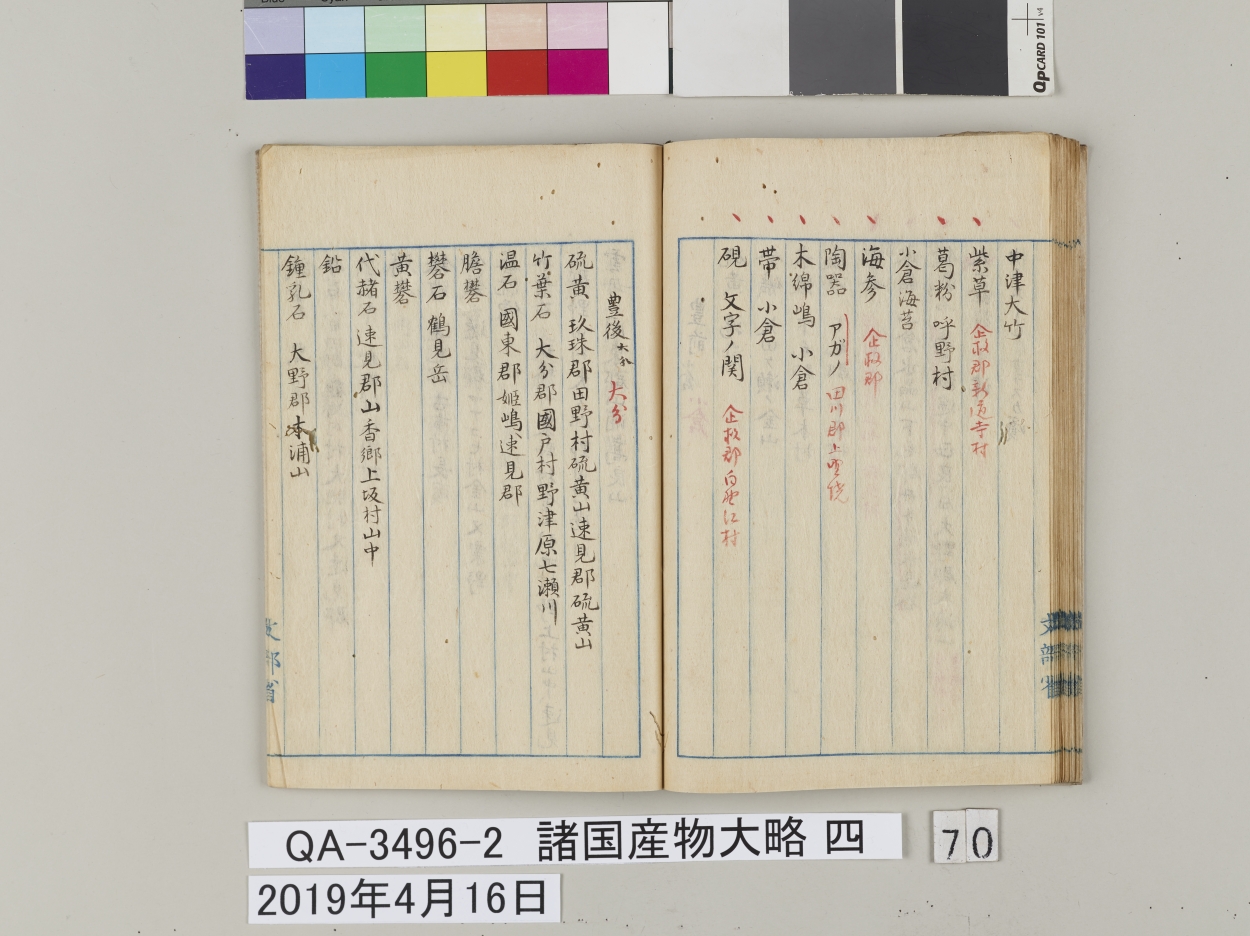 QpCARD 101 v4
中津大竹
紫草 企救郡新道寺村
葛粉 呼野村
小倉海苔
海参 企救郡
陶器 アガノ 田川郡上野焼
木綿嶋 小倉
帯 小倉
硯 文字ノ関 企救郡
豊後 大分
硫黄 玖珠郡田野村硫黄山速見郡硫黄山
竹葉石 大分郡國戸村野津原七瀬川
温石 國東郡姫嶋速見郡
膽礬
礬石 鶴見岳
黄礬
代赭石 速見郡山香郷上坂村山中
鉛
鐘乳石 大野郡木浦山
文部省
文部省
QA-3496-2 諸国産物大略 四
70
2019年4月16日